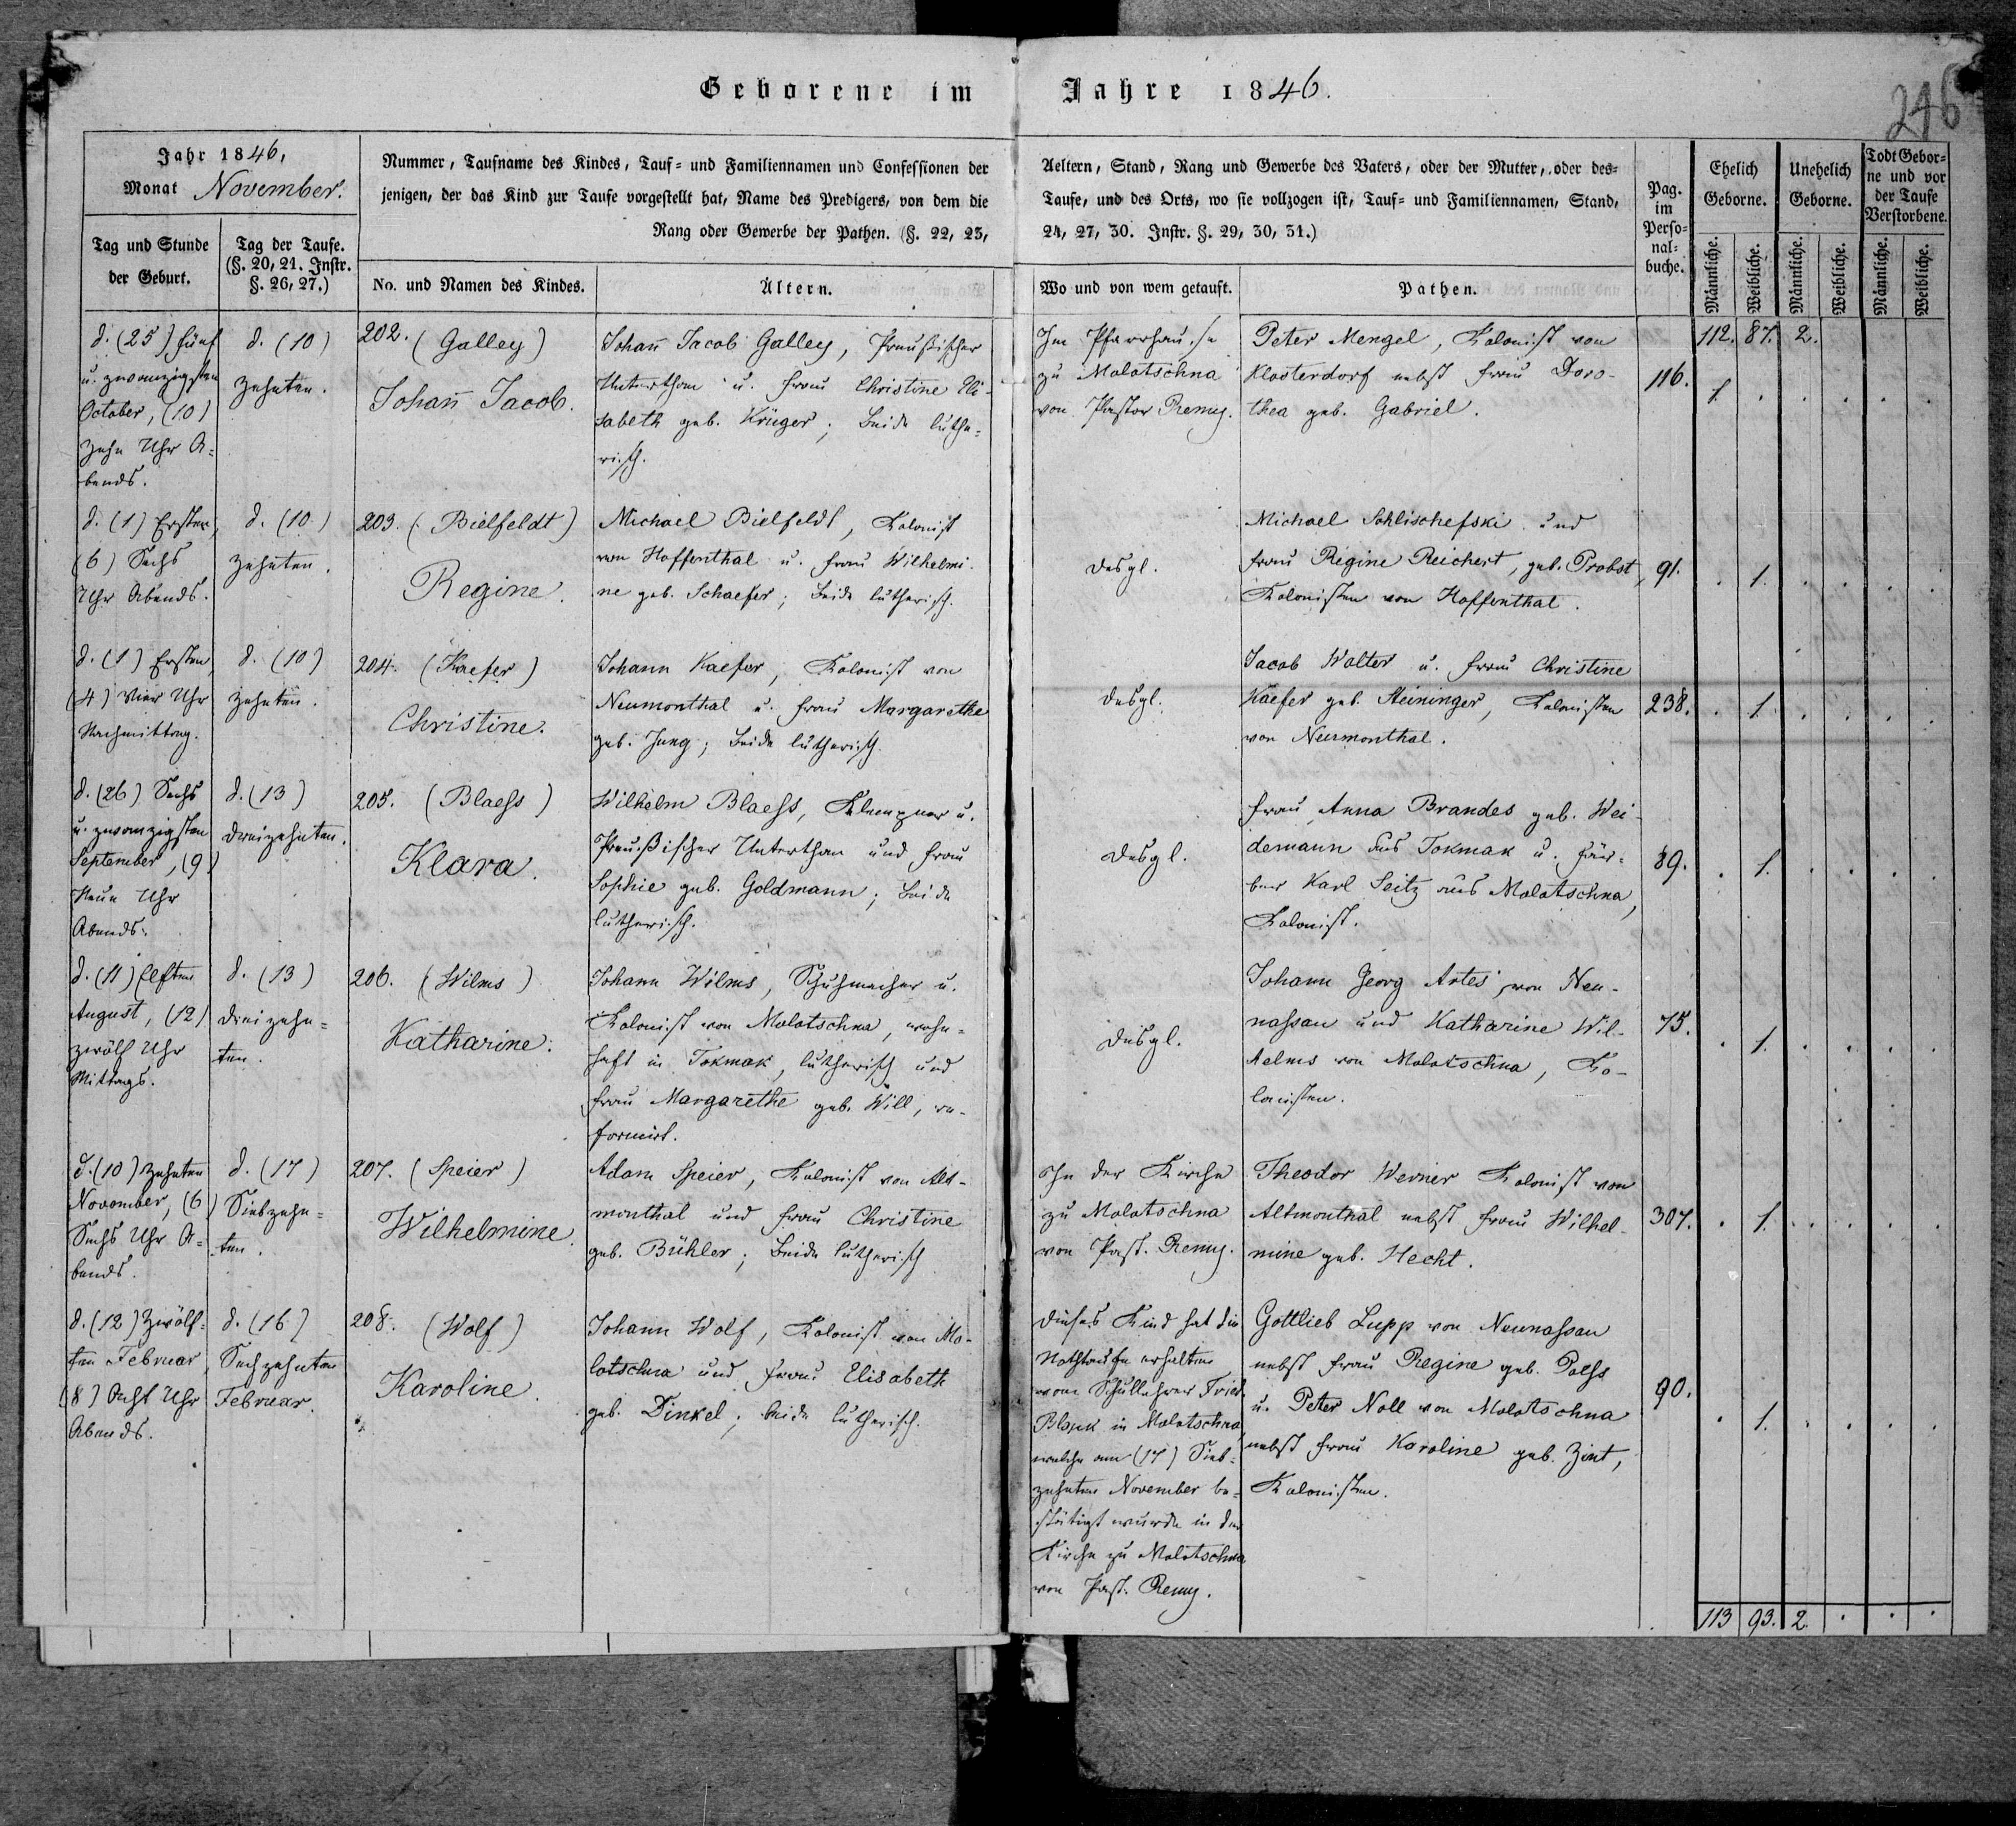 Geborene im Jahre 1846.
246
Jahr 1846,
Monat November.
Nummer, Taufname des Kindes, Tauf= und Familiennamen und Confessionen der Aeltern, Stand, Rang und Gewerbe des Vaters, oder der Mutter, oder des=
jenigen, der das Kind zur Taufe vorgestellt hat, Name des Predigers, von dem die Taufe, und des Orts, wo sie vollzogen ist, Tauf= und Familiennamen, Stand,
Rang oder Gewerbe der Pathen. (§. 22, 23, 24, 27, 30. Instr. §. 29, 30, 31.)
Tag und Stunde
der Geburt.
Tag der Taufe.
(§. 20, 21. Instr.
§. 26, 27.)
No. und Namen des Kindes.
Ältern.
Wo und von wem getauft.
Pathen.
Pag.
im
Perso=
nal=
buche.
Ehelich
Geborne.
Unehelich
Geborne.
Todt Gebor=
ne und vor
der Taufe
Verstorbene.
Männliche.
Weibliche.
Männliche.
Weibliche.
Männliche.
Weibliche.
112. 87. 2.
d. (25) fünf
u. zwanzigsten
October, (10)
Zehn Uhr A=
bends.
d. (10)
zehnten.
202. (Galley)
Johañ Jacob.
Johañ Jacob Galley, Preußischer
Unterthan u. Frau Christine Eli-
sabeth geb. Krüger; beide luthe=
risch.
Im Pfarrhause
zu Molotschna
von Pastor Remy.
Peter Mengel, Kolonist von
Klosterdorf nebst Frau Doro-
thea geb. Gabriel.
116.
1. . . . . .
d. (1) Ersten,
(6) Sechs
Uhr Abends.
d. (10)
zehnten.
203. (Bielfeldt)
Regine.
Michael Bielfeldt, Kolonist
von Hoffenthal u. Frau Wilhelmi-
ne geb. Schaefer; beide lutherisch.
desgl.
Michael Sohlischefski und
Frau Regine Reichert, geb. Probst,
Kolonisten von Hoffenthal.
91.
. 1. . . . .
d. (1) Ersten,
(4) Vier Uhr
Nachmittag.
d. (10)
zehnten.
204. (Kaefer)
Christine.
Johann Kaefer, Kolonist von
Neumonthal u. Frau Margarethe
geb. Jung; beide lutherisch.
desgl.
Jacob Walter u. Frau Christine
Kaefer geb. Heininger, Kolonisten
von Neumonthal.
238.
. 1. . . . .
d. (26) Sechs
u. zwanzigsten
September, (9)
Neun Uhr
Abends.
d. (13)
dreizehnten.
205. (Blaess)
Klara.
Wilhelm Blaess, Klempner u.
Preußischer Unterthan und Frau
Sophie geb. Goldmann; beide
lutherisch.
desgl.
Frau Anna Brandes geb. Wei-
demann aus Tokmak u. Fär-
ber Karl Seitz aus Molotschna,
Kolonist.
89.
. 1. . . . .
d. (11) Elften
August, (12)
zwölf Uhr
Mittags.
d. (13)
dreizehn=
ten.
206. (Wilms)
Katharine.
Johann Wilms, Schuhmacher u.
Kolonist von Molotschna, wohn-
haft in Tokmak, lutherisch und
Frau Margarethe geb. Will, re-
formirt.
desgl.
Johann Georg Artes von Neu-
nassau und Katharine Wil-
helms von Molotschna, Ko-
lonisten.
75.
. 1. . . . .
d. (10) Zehnten
November, (6)
Sechs Uhr A-
bends.
d. (17)
Siebzehn=
ten.
207. (Speier)
Wilhelmine.
Adam Speier, Kolonist von Alt-
monthal und Frau Christine
geb. Bühler; beide lutherisch
In der Kirche
zu Molotschna
von Past. Remy.
Theodor Werner Kolonist von
Altmonthal nebst Frau Wilhel-
mine geb. Hecht.
307.
. 1. . . . .
d. (12) Zwölf-
ten Februar
(8) Acht Uhr
Abends.
d. (16)
Sechzehnten
Februar.
208. (Wolf)
Karoline.
Johann Wolf, Kolonist von Mo-
lotschna und Frau Elisabeth
geb. Dinkel; beide lutherisch.
Dieses Kind hat die
Nothtaufe erhalten
vom Schullehrer Fried.
Blank in Molotschna
welche am (17) Sieb-
zehnten November be-
stätigt wurde in der
Kirche zu Molotschna
von Past. Remy.
Gottlieb Lupp von Neunassau
nebst Frau Regine geb.
u. Peter Noll von Molotschna
nebst Frau Karoline geb. Zint,
Kolonisten.
90.
. 1. . . . .
113 93. 2. . . .